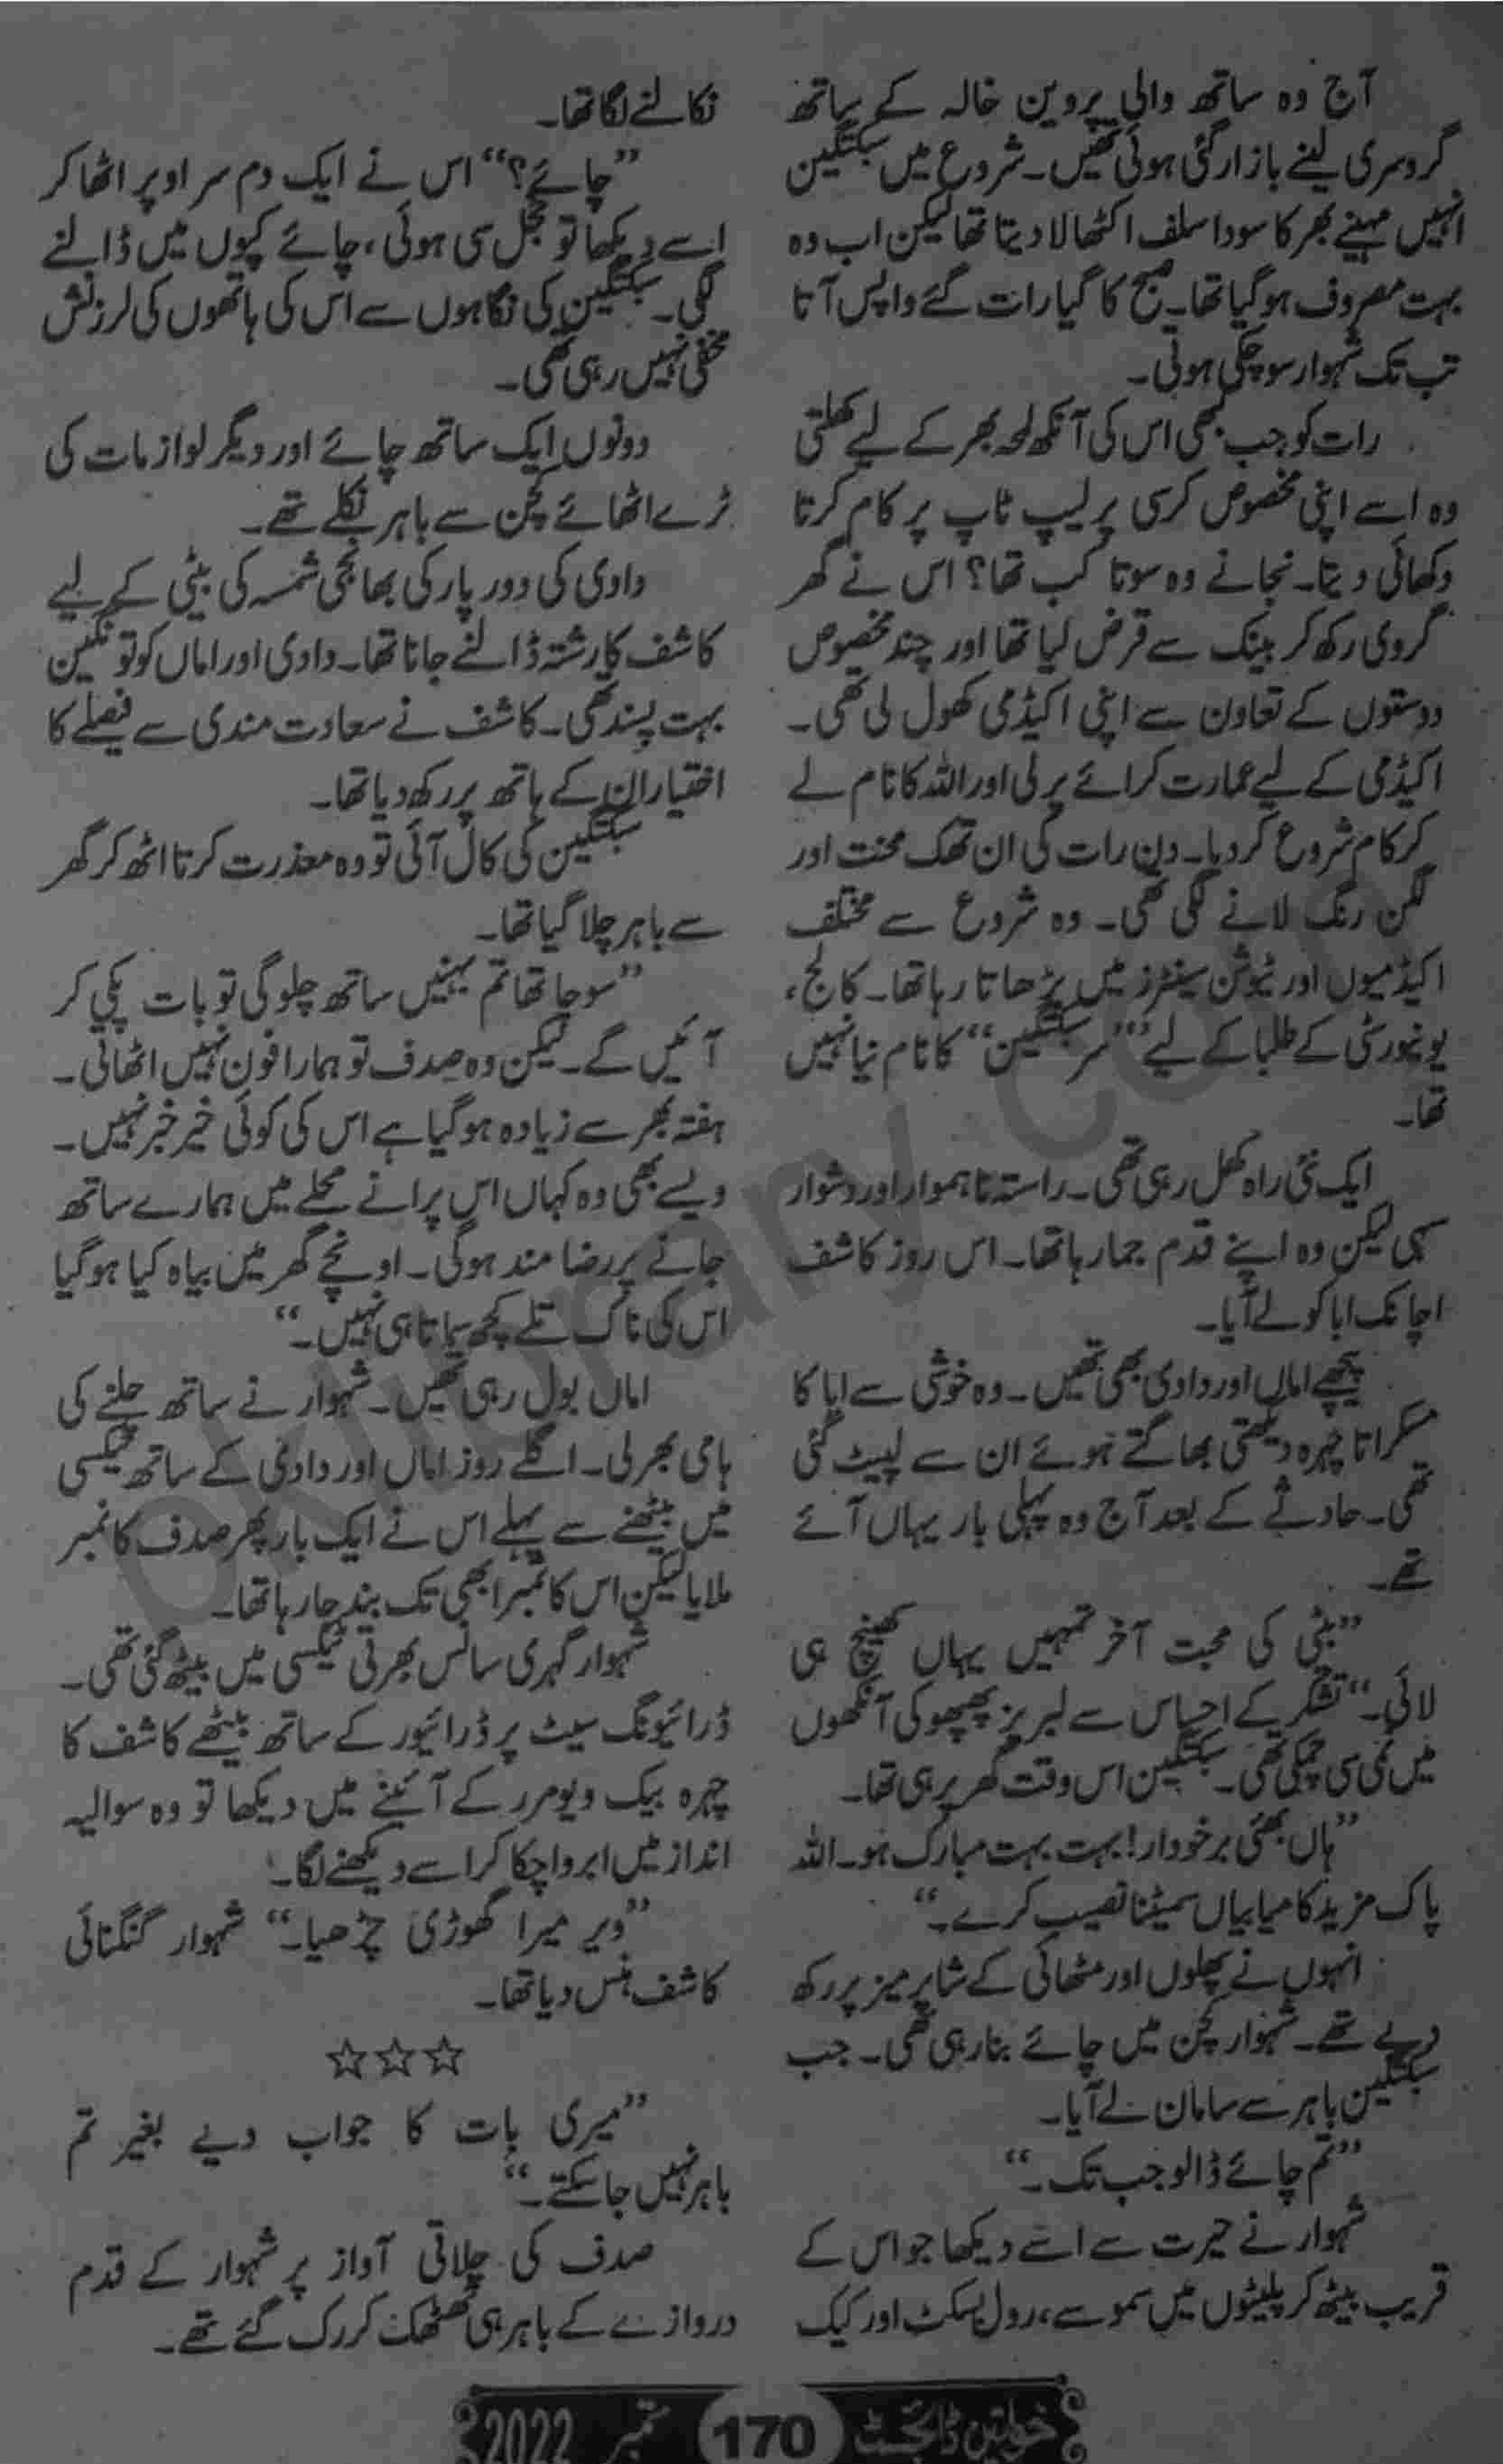 آج وہ ساتھ والی پروین خالہ کے ساتھ
گروسری لینے بازار گئی ہوئی تھیں۔ شروع میں سبکتگین
انہیں مہینے بھر کا سودا سلف اکٹھا لا دیتا تھا لیکن اب وہ
بہت مصروف ہو گیا تھا۔ صبح کا گیا رات گئے واپس آتا
تب تک شہوار سو چکی ہوتی۔
رات کو جب بھی اس کی آنکھ لمحہ بھر کے لیے کھلتی
وہ اسے اپنی مخصوص کرسی پر لیپ ٹاپ پر کام کرتا
دکھائی دیتا۔ نجانے وہ سوتا کب تھا؟ اس نے گھر
گروی رکھ کر بینک سے قرض لیا تھا اور چند مخصوص
دوستوں کے تعاون سے اپنی اکیڈمی کھول لی تھی۔
اکیڈمی کے لیے عمارت کرائے پر لی اور اللہ کا نام لے
کر کام شروع کر دیا۔ دن رات کی ان تھک محنت اور
لگن رنگ لانے لگی تھی۔ وہ شروع سے مختلف
اکیڈمیوں اور ٹیوشن سینٹرز میں پڑھاتا رہا تھا۔ کالج،
یونیورسٹی کے طلبا کے لیے ”سر سبکتگین“ کا نام نیا نہیں
تھا۔
ایک نئی راہ کھل رہی تھی۔ راستہ ناہموار اور دشوار
سہی لیکن وہ اپنے قدم جما رہا تھا۔ اس روز کاشف
اچانک ابا کو لے آیا۔
پیچھے اماں اور دادی بھی تھیں۔ وہ خوشی سے ابا کا
مسکراتا چہرہ دیکھتی بھاگتے ہوئے ان سے لپٹ گئی
تھی۔ حادثے کے بعد آج وہ پہلی بار یہاں آئے
تھے۔
”بیٹی کی محبت آخر تمہیں یہاں کھینچ ہی
لائی۔“ تشکر کے احساس سے لبریز پھپھو کی آنکھوں
میں نمی سی چمکی تھی۔ سبکتگین اس وقت گھر پر ہی تھا۔
”ہاں بھئی برخودار! بہت بہت مبارک ہو۔ اللہ
پاک مزید کامیابیاں سمیٹنا نصیب کرے۔“
انہوں نے پھلوں اور مٹھائی کے شاپر میز پر رکھ
دیے تھے۔ شہوار کچن میں چائے بنا رہی تھی۔ جب
سبکتگین باہر سے سامان لے آیا۔
”تم چائے ڈالو جب تک۔“
شہوار نے حیرت سے اسے دیکھا جو اس کے
قریب بیٹھ کر پلیٹوں میں سموسے، رول بسکٹ اور کیک
نکالنے لگا تھا۔
”چائے؟“ اس نے ایک دم سر اوپر اٹھا کر
اسے دیکھا تو خجل سی ہوئی، چائے کپوں میں ڈالنے
لگی۔ سبکتگین کی نگاہوں سے اس کی ہاتھوں کی لرزش
مخفی نہیں رہی تھی۔
دونوں ایک ساتھ چائے اور دیگر لوازمات کی
ٹرے اٹھائے کچن سے باہر نکلے تھے۔
دادی کی دور پار کی بھانجی شمسہ کی بیٹی کے لیے
کاشف کا رشتہ ڈالنے جانا تھا۔ دادی اور اماں کو تو نگین
بہت پسند تھی۔ کاشف نے سعادت مندی سے فیصلے کا
اختیار ان کے ہاتھ پر رکھ دیا تھا۔
سبکتگین کی کال آئی تو وہ معذرت کرتا اٹھ کر گھر
سے باہر چلا گیا تھا۔
”سوچا تھا تم بہنیں ساتھ چلو گی تو بات پکی کر
آئیں گے۔ لیکن وہ صدف تو ہمارا فون نہیں اٹھاتی۔
ہفتہ بھر سے زیادہ ہو گیا ہے اس کی کوئی خیر خبر نہیں۔
ویسے بھی وہ کہاں اس پرانے محلے میں ہمارے ساتھ
جانے پر رضا مند ہوگی۔ اونچے گھر میں بیاہ کیا ہو گیا
اس کی ناک تلے کچھ سماتا ہی نہیں۔“
اماں بول رہی تھیں۔ شہوار نے ساتھ چلنے کی
ہامی بھر لی۔ اگلے روز اماں اور دادی کے ساتھ ٹیکسی
میں بیٹھنے سے پہلے اس نے ایک بار پھر صدف کا نمبر
ملایا لیکن اس کا نمبر ابھی تک بند جا رہا تھا۔
شہوار گہری سانس بھرتی ٹیکسی میں بیٹھ گئی تھی۔
ڈرائیونگ سیٹ پر ڈرائیور کے ساتھ بیٹھے کاشف کا
چہرہ بیک ویو مرر کے آئینے میں دیکھا تو وہ سوالیہ
انداز میں ابرو اچکا کر اسے دیکھنے لگا۔
”ویر میرا گھوڑی چڑھیا۔“ شہوار گنگنائی
کاشف ہنس دیا تھا۔
☆☆☆
”میری بات کا جواب دیے بغیر تم
باہر نہیں جا سکتے۔“
صدف کی چلاتی آواز پر شہوار کے قدم
دروازے کے باہر ہی ٹھٹھک کر رک گئے تھے۔
خواتین ڈائجسٹ 170 ستمبر 2022
pklibrary.com